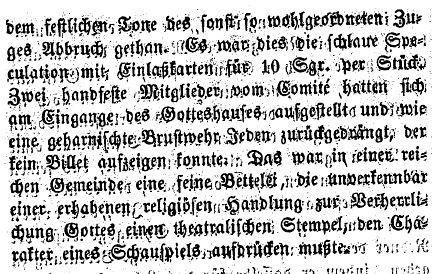 dem festlichen Tone des sonst so wohlgeordneten Zu-
ges Abbruch gethan. Es war dies die schlaue Spe-
culation mit Einlaßkarten für 10 Sgr. per Stück.
Zwei handfeste Mitglieder vom Comité hatten sich
am Eingange des Gotteshauses aufgestellt und wie
eine geharnischte Brustwehr Jeden zurückgedrängt, der
kein Billet aufzeigen konnte. Das war in einer rei-
chen Gemeinde eine feine Bettelei, die unverkennbar
einer erhabenen religiösen Handlung zur Verherrli-
chung Gottes einen theatralischen Stempel, den Cha-
rakter eines Schauspiels aufdrücken mußte.